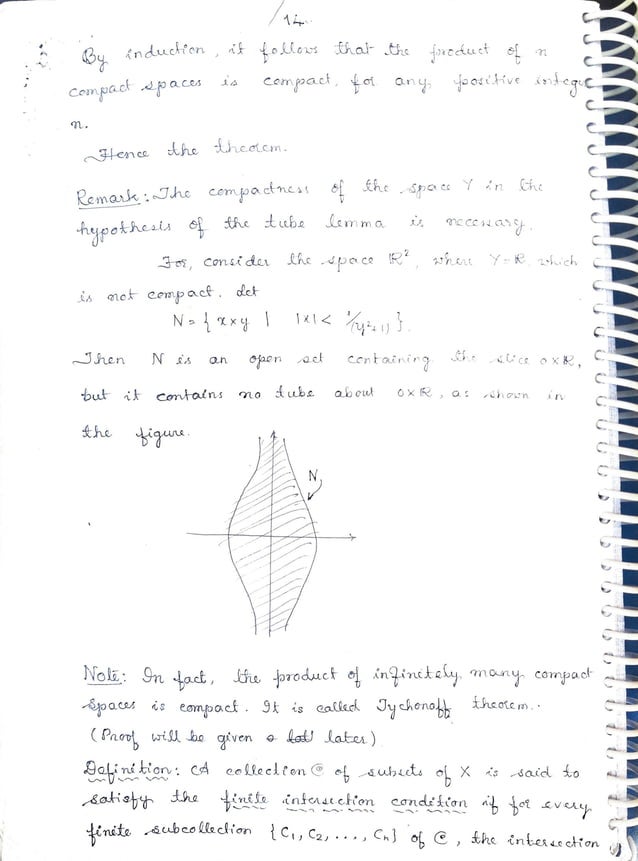 14.
By induction, it follows that the product of n
compact spaces is compact, for any positive integer
n.
Hence the theorem.
Remark: The compactness of the space Y in the
hypothesis of the tube lemma is necessary.
For, consider the space ℝ², where Y=ℝ, which
is not compact. Let
N = { x×y | |x| < 1/(y²+1) }.
Then N is an open set containing the slice 0×ℝ,
but it contains no tube about 0×ℝ, as shown in
the figure.
N
Note: In fact, the product of infinitely many compact
spaces is compact. It is called Tychonoff theorem..
(Proof will be given later)
Definition: A collection C of subsets of X is said to
satisfy the finite intersection condition if for every
finite subcollection {C₁, C₂, ..., Cn} of C, the intersection